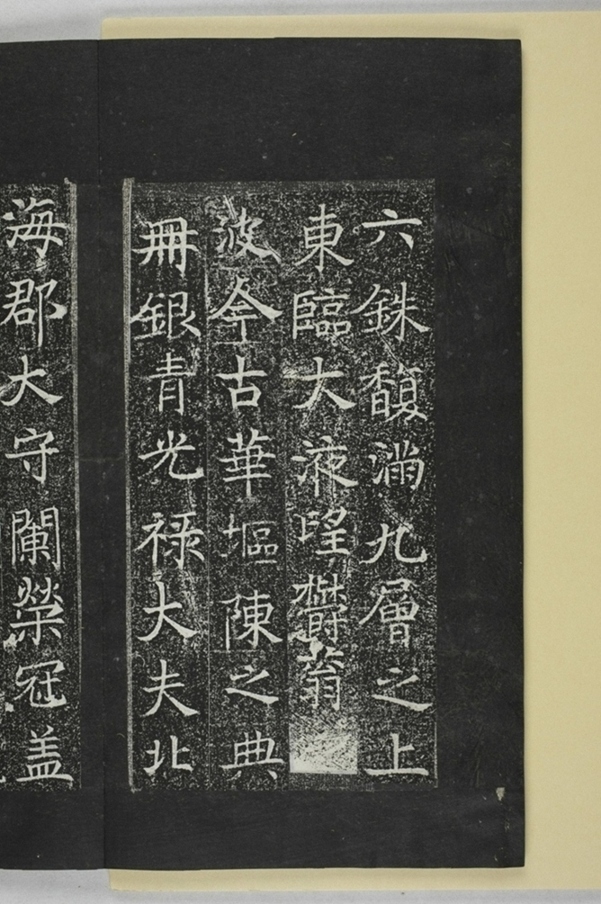 六銖馥滿九層之上
東臨大液望欝蓊
波今古華塸陳之典
冊銀青光禄大夫北
海郡大守闡榮冠盖